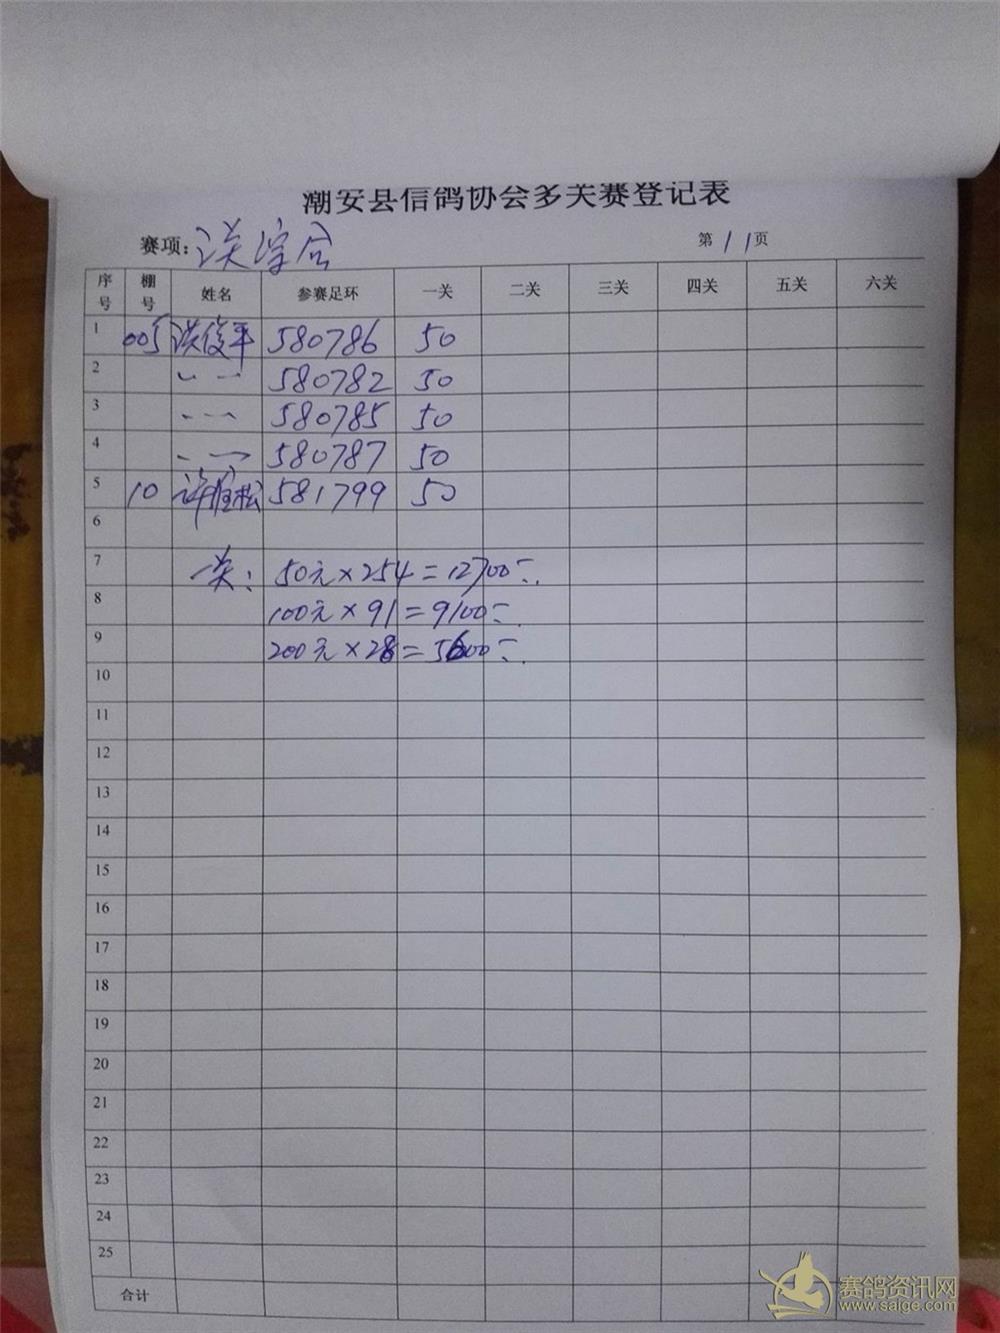 潮安县信鸽协会多关赛登记表
赛项: 综合 第11页
序号 棚号 姓名 参赛足环 一关 二关 三关 四关 五关 六关
1 005 洪俊平 580786 50
2 580782 50
3 580785 50
4 580787 50
5 10 许 松 581799 50
6
7 关: 50元×254=12700
8 100元×91=9100
9 200元×28=5600
10
11
12
13
14
15
16
17
18
19
20
21
22
23
24
25
合计
赛鸽资讯网
www.saige.com